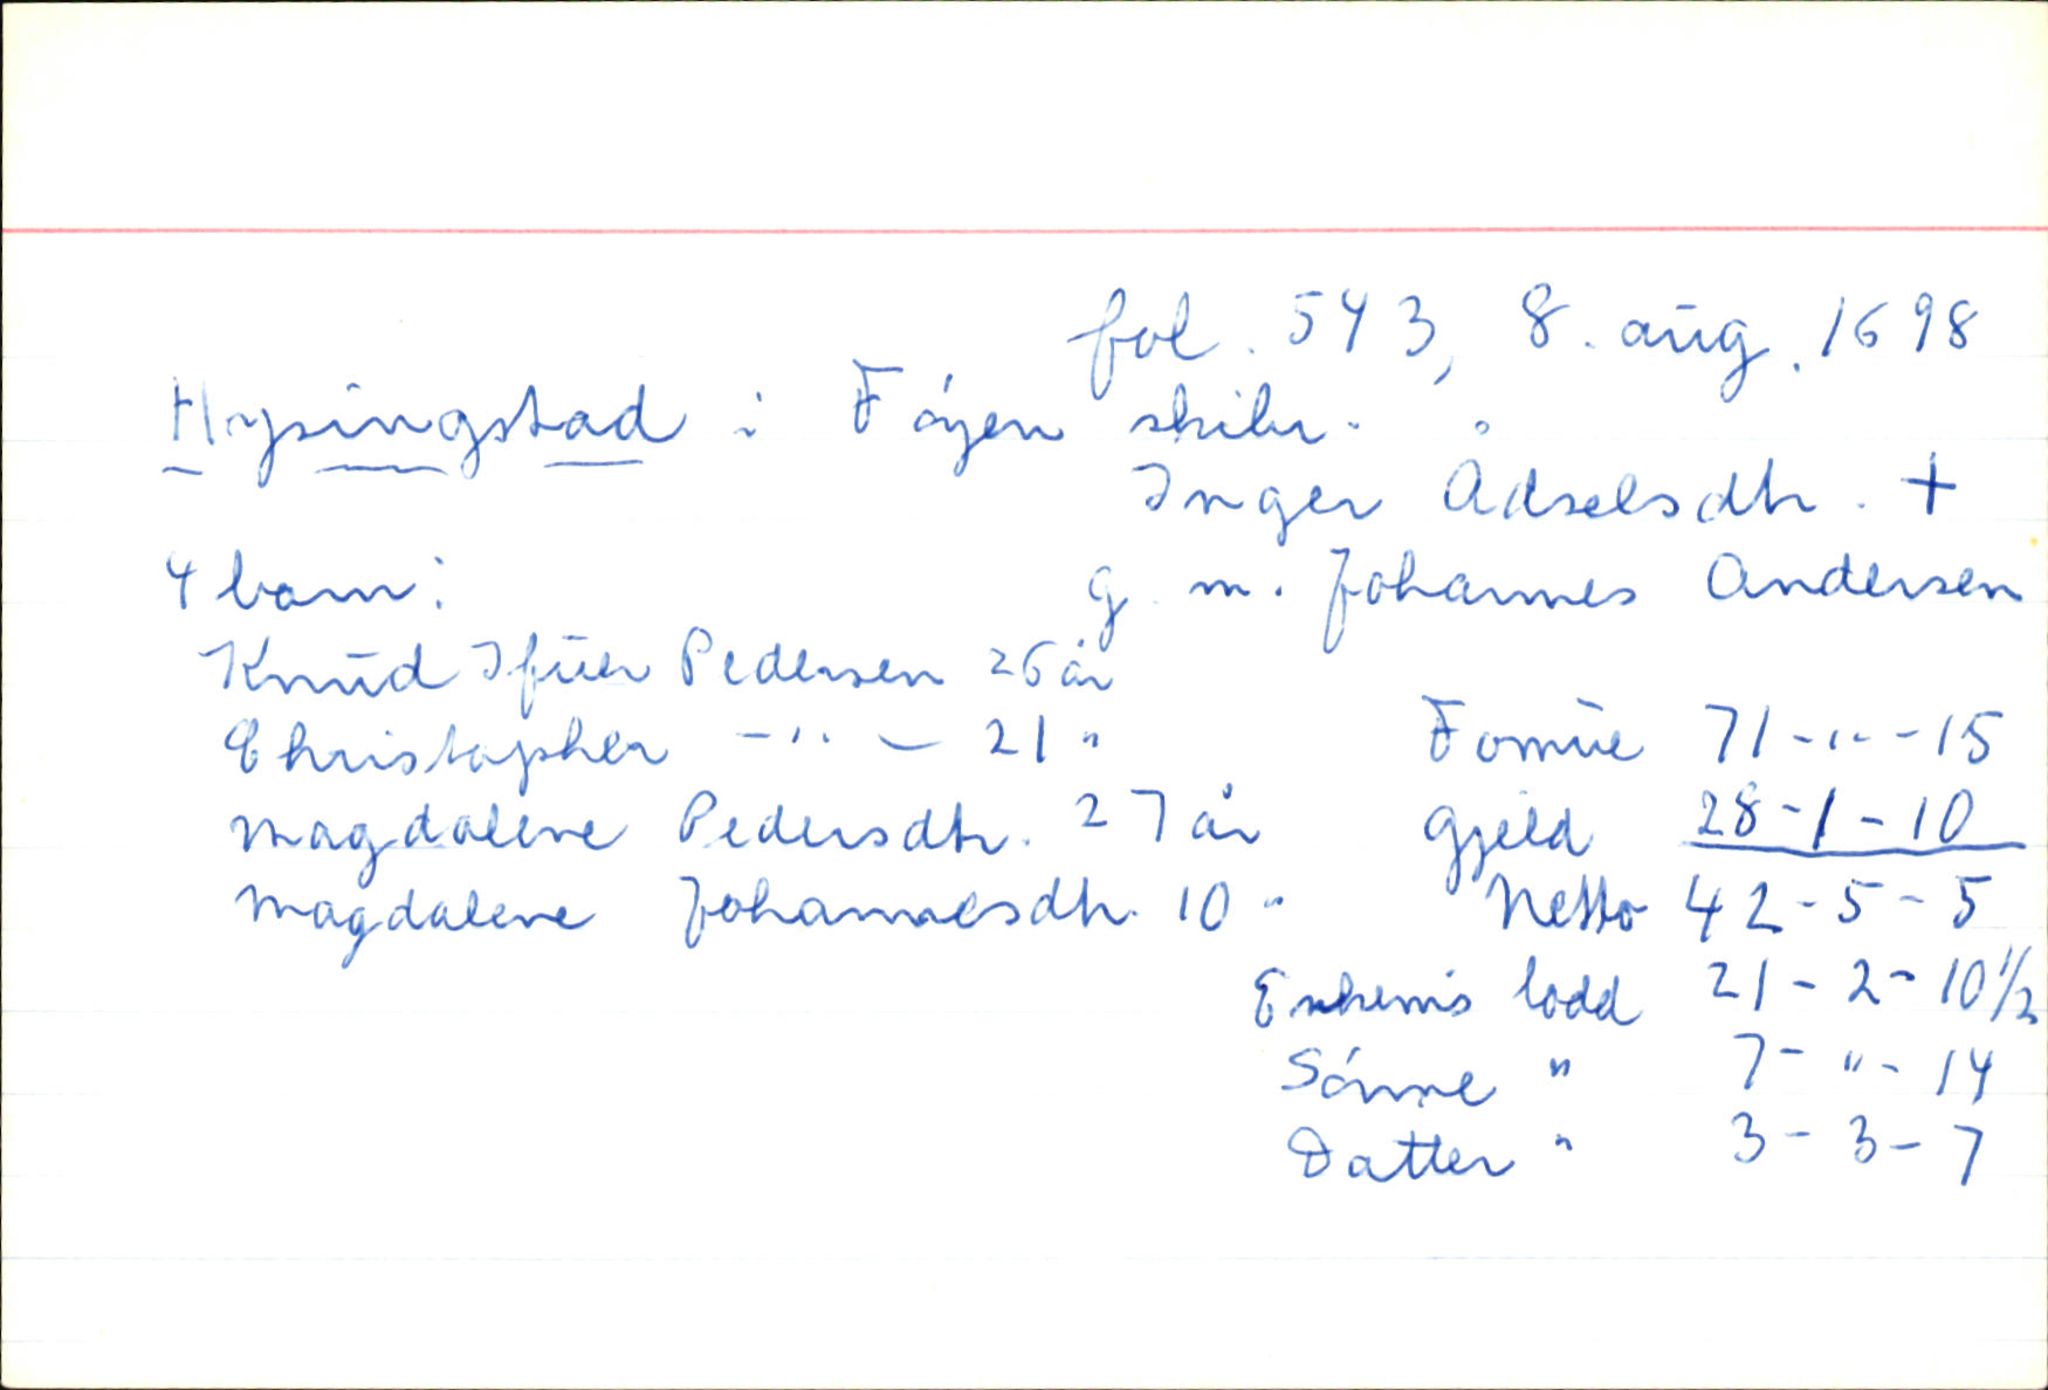 fol. 543, 8. aug. 1698
Hysingstad i Föyen skibr.
Inger Adselsdtr. +
4 barn: g. m. Johannes Andersen
Knud Ifuer Pedersen 26 år
Christopher -"- 21 " Formue 71-"-15
Magdalene Pedersdtr. 27 år Gjeld 28-1-10
Magdalene Johannesdtr. 10 " Netto 42-5-5
Enkemis lodd 21-2-10 1/2
Sönne " 7-"-14
Datter " 3-3-7